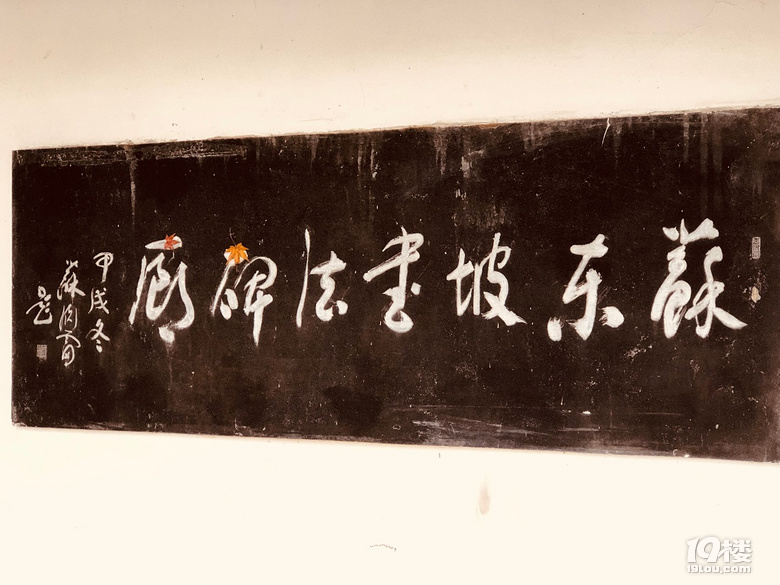 蘇东坡書法碑廊
甲戌冬
蘇
題
19楼
19lou.com